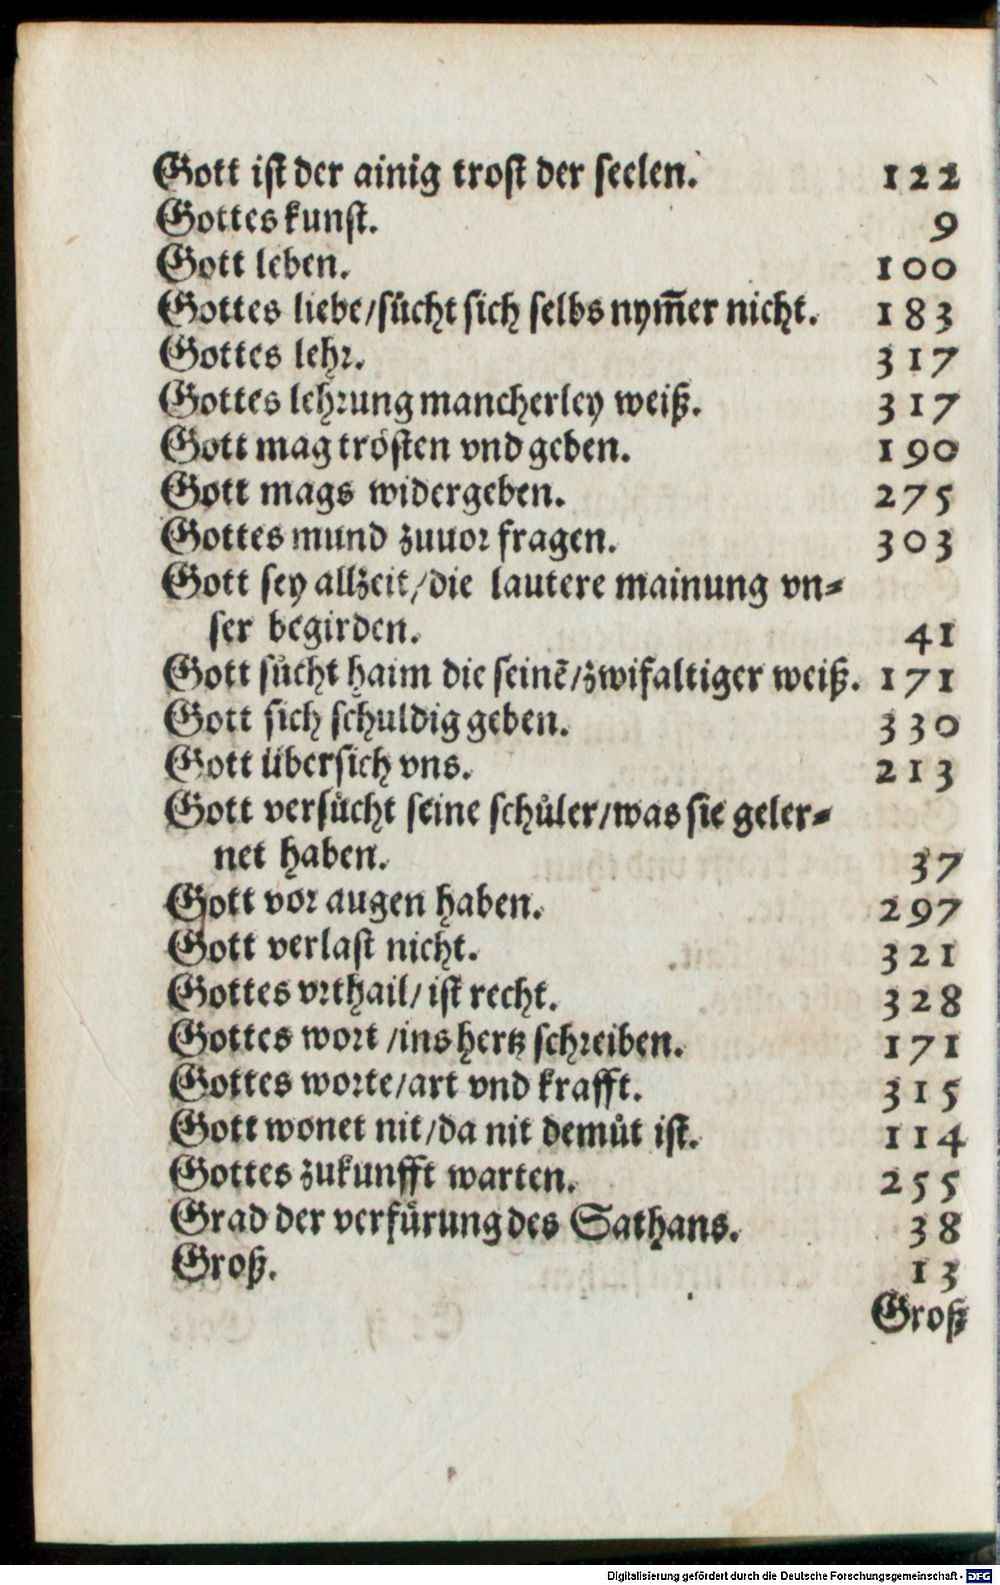 Gott ist der ainig trost der seelen. 122
Gottes kunst. 9
Gott leben. 100
Gottes liebe/sücht sich selbs nym̃er nicht. 183
Gottes lehr. 317
Gottes lehrung mancherley weiß. 317
Gott mag trösten vnd geben. 190
Gott mags widergeben. 275
Gottes mund zuuor fragen. 303
Gott sey allzeit/die lautere mainung vn⸗
ser begirden. 41
Gott sůcht haim die seinẽ/zwifaltiger weiß. 171
Gott sich schuldig geben. 330
Gott übersich vns. 213
Gott versůcht seine schůler/was sie geler⸗
net haben. 37
Gott vor augen haben. 297
Gott verlast nicht. 321
Gottes vrthail/ist recht. 328
Gottes wort/ins hertz schreiben. 171
Gottes worte/art vnd krafft. 315
Gott wonet nit/da nit demůt ist. 114
Gottes zukunfft warten. 255
Grad der verfůrung des Sathans. 38
Groß. 13
Groß
Digitalisierung gefördert durch die Deutsche Forschungsgemeinschaft - DFG